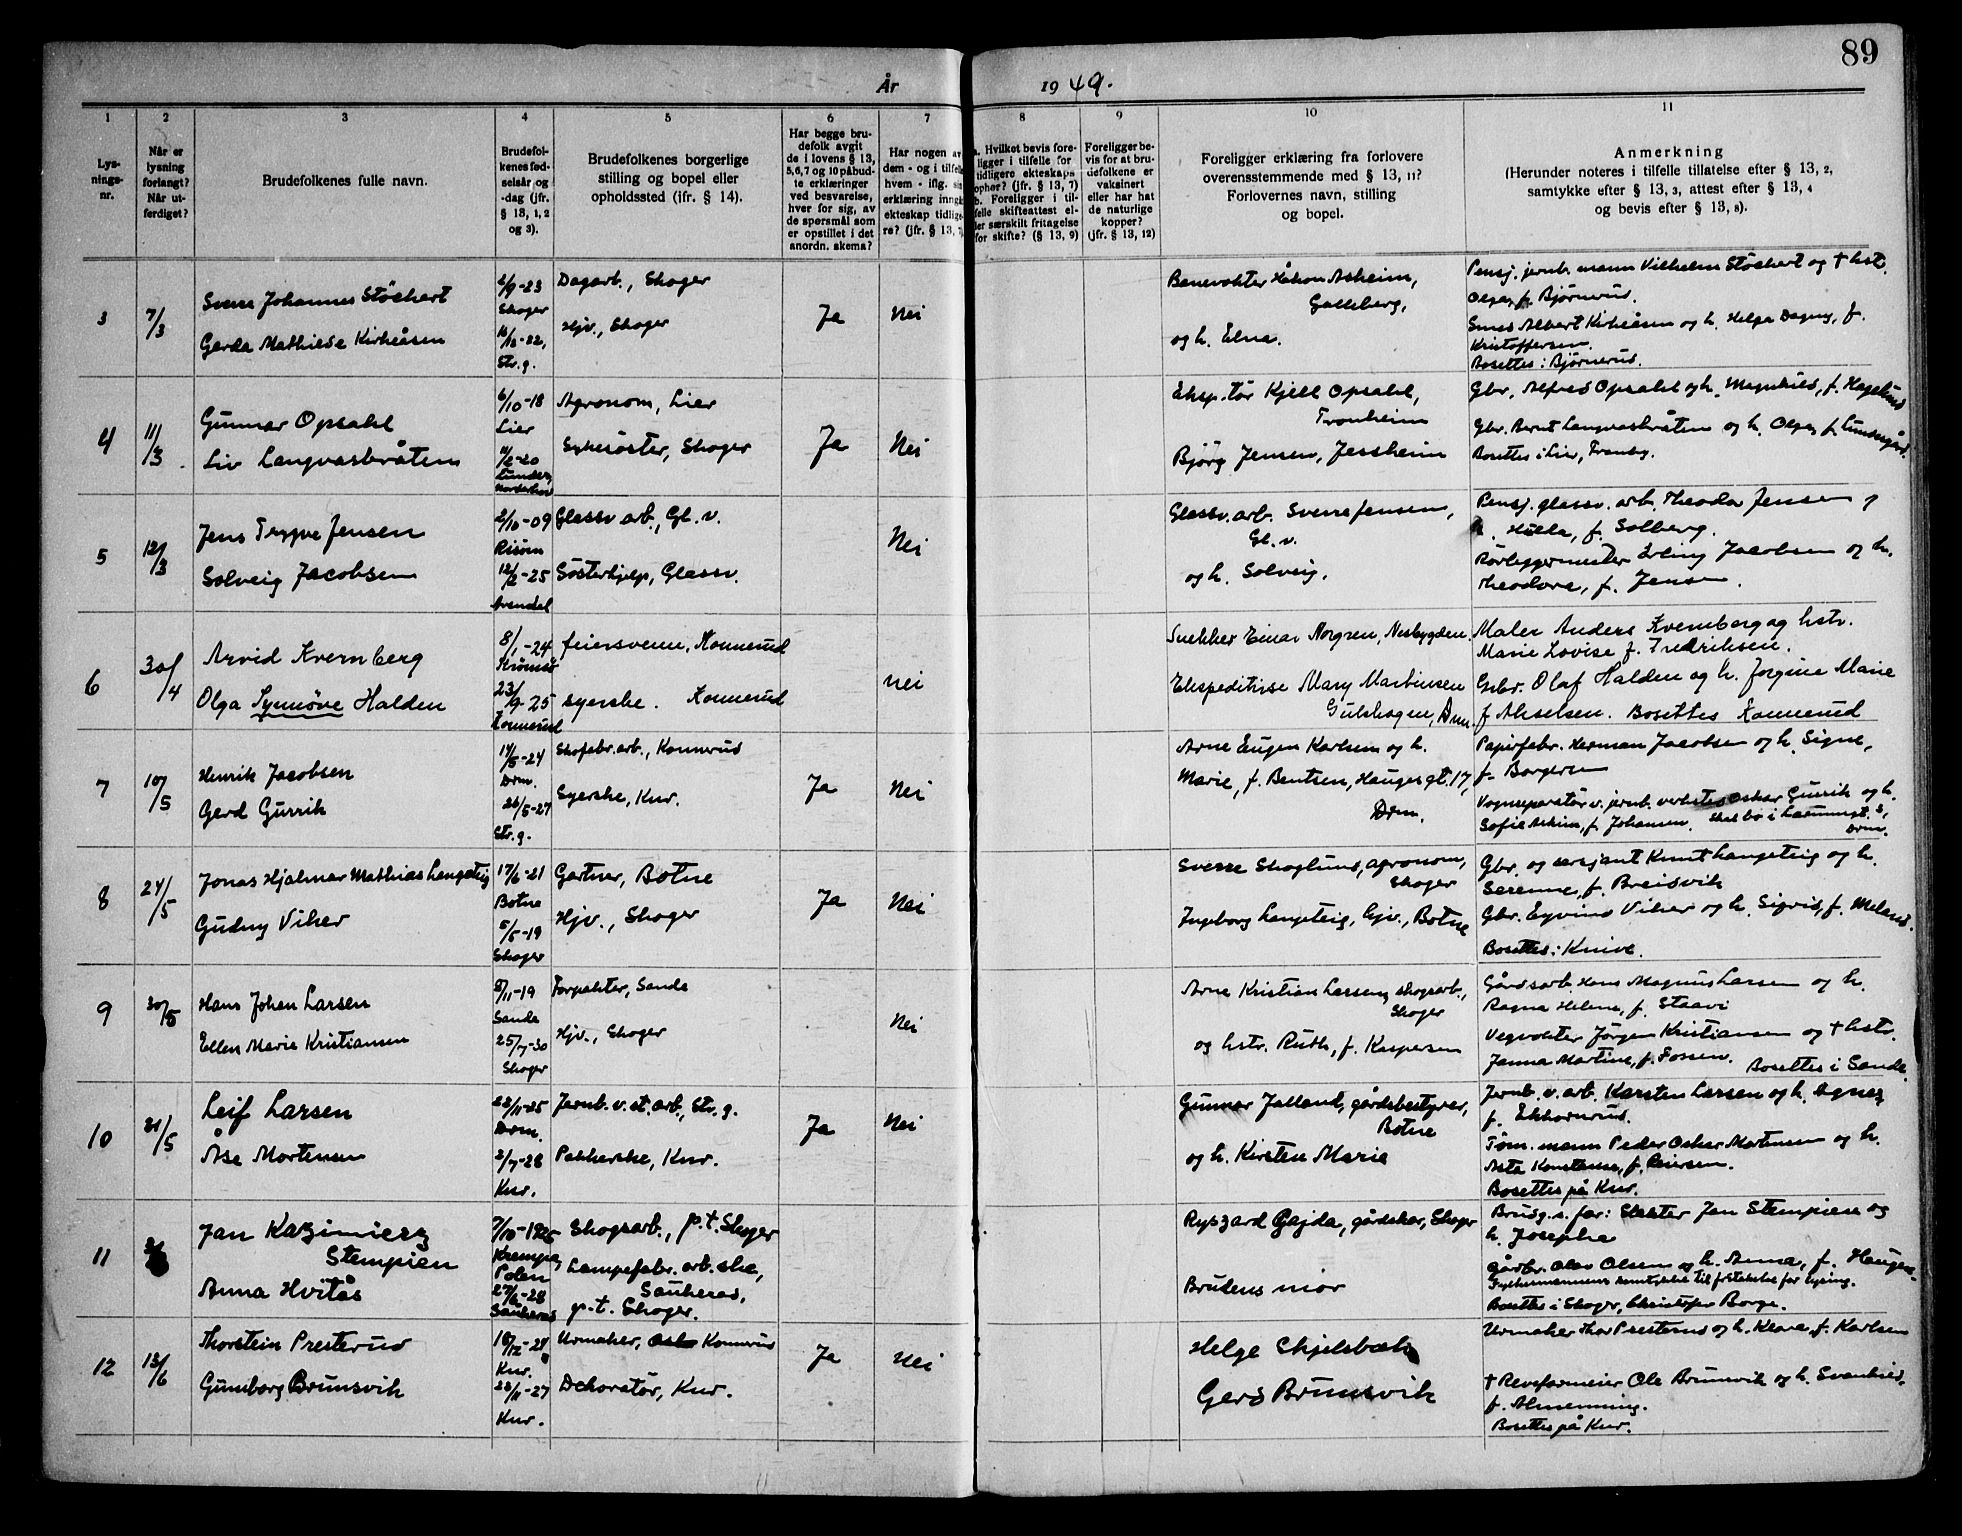 89
År 1949.
1 2 3 4 5 6 7 8 9 10 11
Lys-
nings-
nr.
Når er
lysning
forlangt?
Når ut-
ferdiget?
Brudefolkenes fulle navn.
Brudefol-
kenes fød-
selsår og
-dag (jfr.
§ 13, 1, 2
og 3).
Brudefolkenes borgerlige
stilling og bopel eller
opholdssted (ifr. § 14).
Har begge bru-
defolk avgit
de i lovens § 13,
5, 6, 7 og 10 påbud-
te erklæringer
ved besvarelse,
hver for sig, av
de spørsmål som
er opstillet i det
anordn. skema?
Har nogen av
dem - og i tilfelle
hvem - iflg. sin
erklæring inngått
ekteskap tidlige-
re? (jfr. § 13, 7)
a. Hvilket bevis fore-
ligger i tilfelle for
tidligere ekteskaps
ophør? (jfr. § 13, 7)
b. Foreligger i til-
felle skifteattest el-
ler særskilt fritagelse
for skifte? (§ 13, 9)
Foreligger be-
vis for at bru-
defolkene er
vaksinert
eller har hat
de naturlige
kopper?
(jfr. § 13, 12)
Foreligger erklæring fra forlovere
overensstemmende med § 13, 11?
Forlovernes navn, stilling
og bopel.
Anmerkning
(Herunder noteres i tilfelle tillatelse efter § 13, 2,
samtykke efter § 13, 3, attest efter § 13, 4
og bevis efter § 13, 8).
3 7/3 Sverre Johannes Stöckert
Gerda Mathilde Kirkeåsen
6/9-23
Skoger
16/12-22,
Str.g.
Dagarb., Skoger
Hjv., Skoger
Ja Nei
Banevokter Håkon Askeim,
Galleberg,
og h. Elna.
Pensj. jernb. mann Vilhelm Stöckert og † hst.
Olga, f. Bjørnrud.
Smed Albert Kirkeåsen og h. Helga Dagny, f.
Kristoffersen.
Bosettes i Bjørnerud.
4 11/3 Gunnar Opsahl
Liv Langvasbråten
6/10-18
Lier
11/2-20
Lunder,
Norderhov
Agronom, Lier
Sykesøster, Skoger
Ja Nei
Eksp.tør Kjell Opsahl,
Tronheim
Bjørg Jensen, Jessheim
Gbr. Alfred Opsahl og h. Magnhild, f. Hagelund
Gbr. Bernt Langvasbråten og h. Olga, f. Lundesgård.
Bosettes i Lier, Tranby.
5 12/3 Jens Trygve Jensen
Solveig Jacobsen
2/10-09
Risøm
12/2-25
Arendal
Glassv. arb., Gl.v.
Søsterhjelp, Glassv.
Nei
Glassv. arb. Sverre Jensen,
Gl.v.
og h. Solveig.
Pensj. glassv. arb. Theodor Jensen og
h. Hilda, f. Solberg.
Rørleggermester Erling Jacobsen og h.
Theodora, f. Jensen.
6 30/4 Arvid Kvernberg
Olga Synnøve Halden
8/1-24
Strømsø
23/9-25
Konnerud
feiersvenn, Konnerud
syerske. Konnerud
nei
Snekker Einar Norgren, Nesbygden.
Ekspeditrise Mary Martinsen
Gulskogen, Drm.
Maler Anders Kvernberg og hstr.
Marie Lovise f. Fredriksen.
Grbr. Olaf Halden og h. Jorgine Marie
f Akselsen. Bosettes Konnerud
7 10/5 Henrik Jacobsen
Gerd Gurrik
14/5-24
Drm.
26/5-27
Str.g.
Skofabr. arb., Konnerud
Syerske, Knr.
Ja Nei
Arne Eugen Karlsen og h.
Marie, f. Bentsen, Hauges gt. 17,
Drm.
Papirfabr. Herman Jacobsen og h. Signe,
f. Borgersen
Vognreparatør v. jernb. verksted Oskar Gurrik og h.
Sofie Askim, f. Johansen. Skal bo i
Drm.
8 24/5 Jonas Hjalmar Mathias Langeteig
Gudny Viker
17/6-21
Botne
5/5-19
Skoger
Gartner, Botne
Hjv., Skoger
Ja Nei
Sverre Skoglund, agronom,
Skoger
Ingeborg Langeteig, hjv., Botne
Gbr. og sersjant Knut Langeteig og h.
Serenne, f. Breisvik
Gbr. Eyvind Viker og h. Sigrid, f. Meland.
Bosettes i Knive.
9 30/5 Hans Johan Larsen
Ellen Marie Kristiansen
8/11-19
Sande
25/7-30
Skoger
Forpakter, Sande
Hjv., Skoger
Nei
Arne Kristian Larsen, skogsarb.,
Skoger
og hstr. Ruth, f. Kaspersen
Gårdsarb. Hans Magnus Larsen og h.
Ragna Helene, f. Staavi
Vegvokter Jørgen Kristiansen og † hstr.
Janna Martine, f. Fossen. Bosettes i Sande.
10 31/5 Leif Larsen
Åse Mortensen
22/11-25
Drm.
2/7-28
Knr.
Jernb. v. st. arb., Str.g.
Pakkerske, Knr.
Ja Nei
Gunnar Jalland, gårdsbestyrer,
Botne
og h. Kirsten Marie
Jernb. v. arb. Karsten Larsen og h. Agnes,
f. Ekhornrud.
Tøm. mann Peder Oskar Mortensen og h.
Asta Konstanse, f. Iversen.
Bosettes på Knr.
11 Jan Kazimierz
Stempien
Anna Hvitås
7/10-1925
Krempa,
Polen
-28
Sauherad
Skogsarb., p.t. Skoger
Lampefabr. arb.ske,
Sauherad,
p.t. Skoger.
Ryszard Gajda, gårdskar, Skoger
Brudens mor
Brudg.s. far: Jan Stempien og
h. Josepha
Gårdbr. Olav Olsen og h. Anna, f. Haugen.
Fylkesmannens samtykke til fritakelse for lysing.
Bosettes i Skoger, Christofer Borge.
12 13/6 Thorstein Presterud
Gunnborg Brunsvik
18/12-21
Knr.
28/11-27
Knr.
Urmaker, Konnerud
Dekoratør, Knr.
Ja Nei
Helge Chjelsbæk
Gerd Brunsvik
Urmaker Thor Presterud og h. Klara, f. Karlsen
† Revefarmeier Ole Brunsvik og h. Svanhild,
f. Almenning.
Bosettes på Knr.